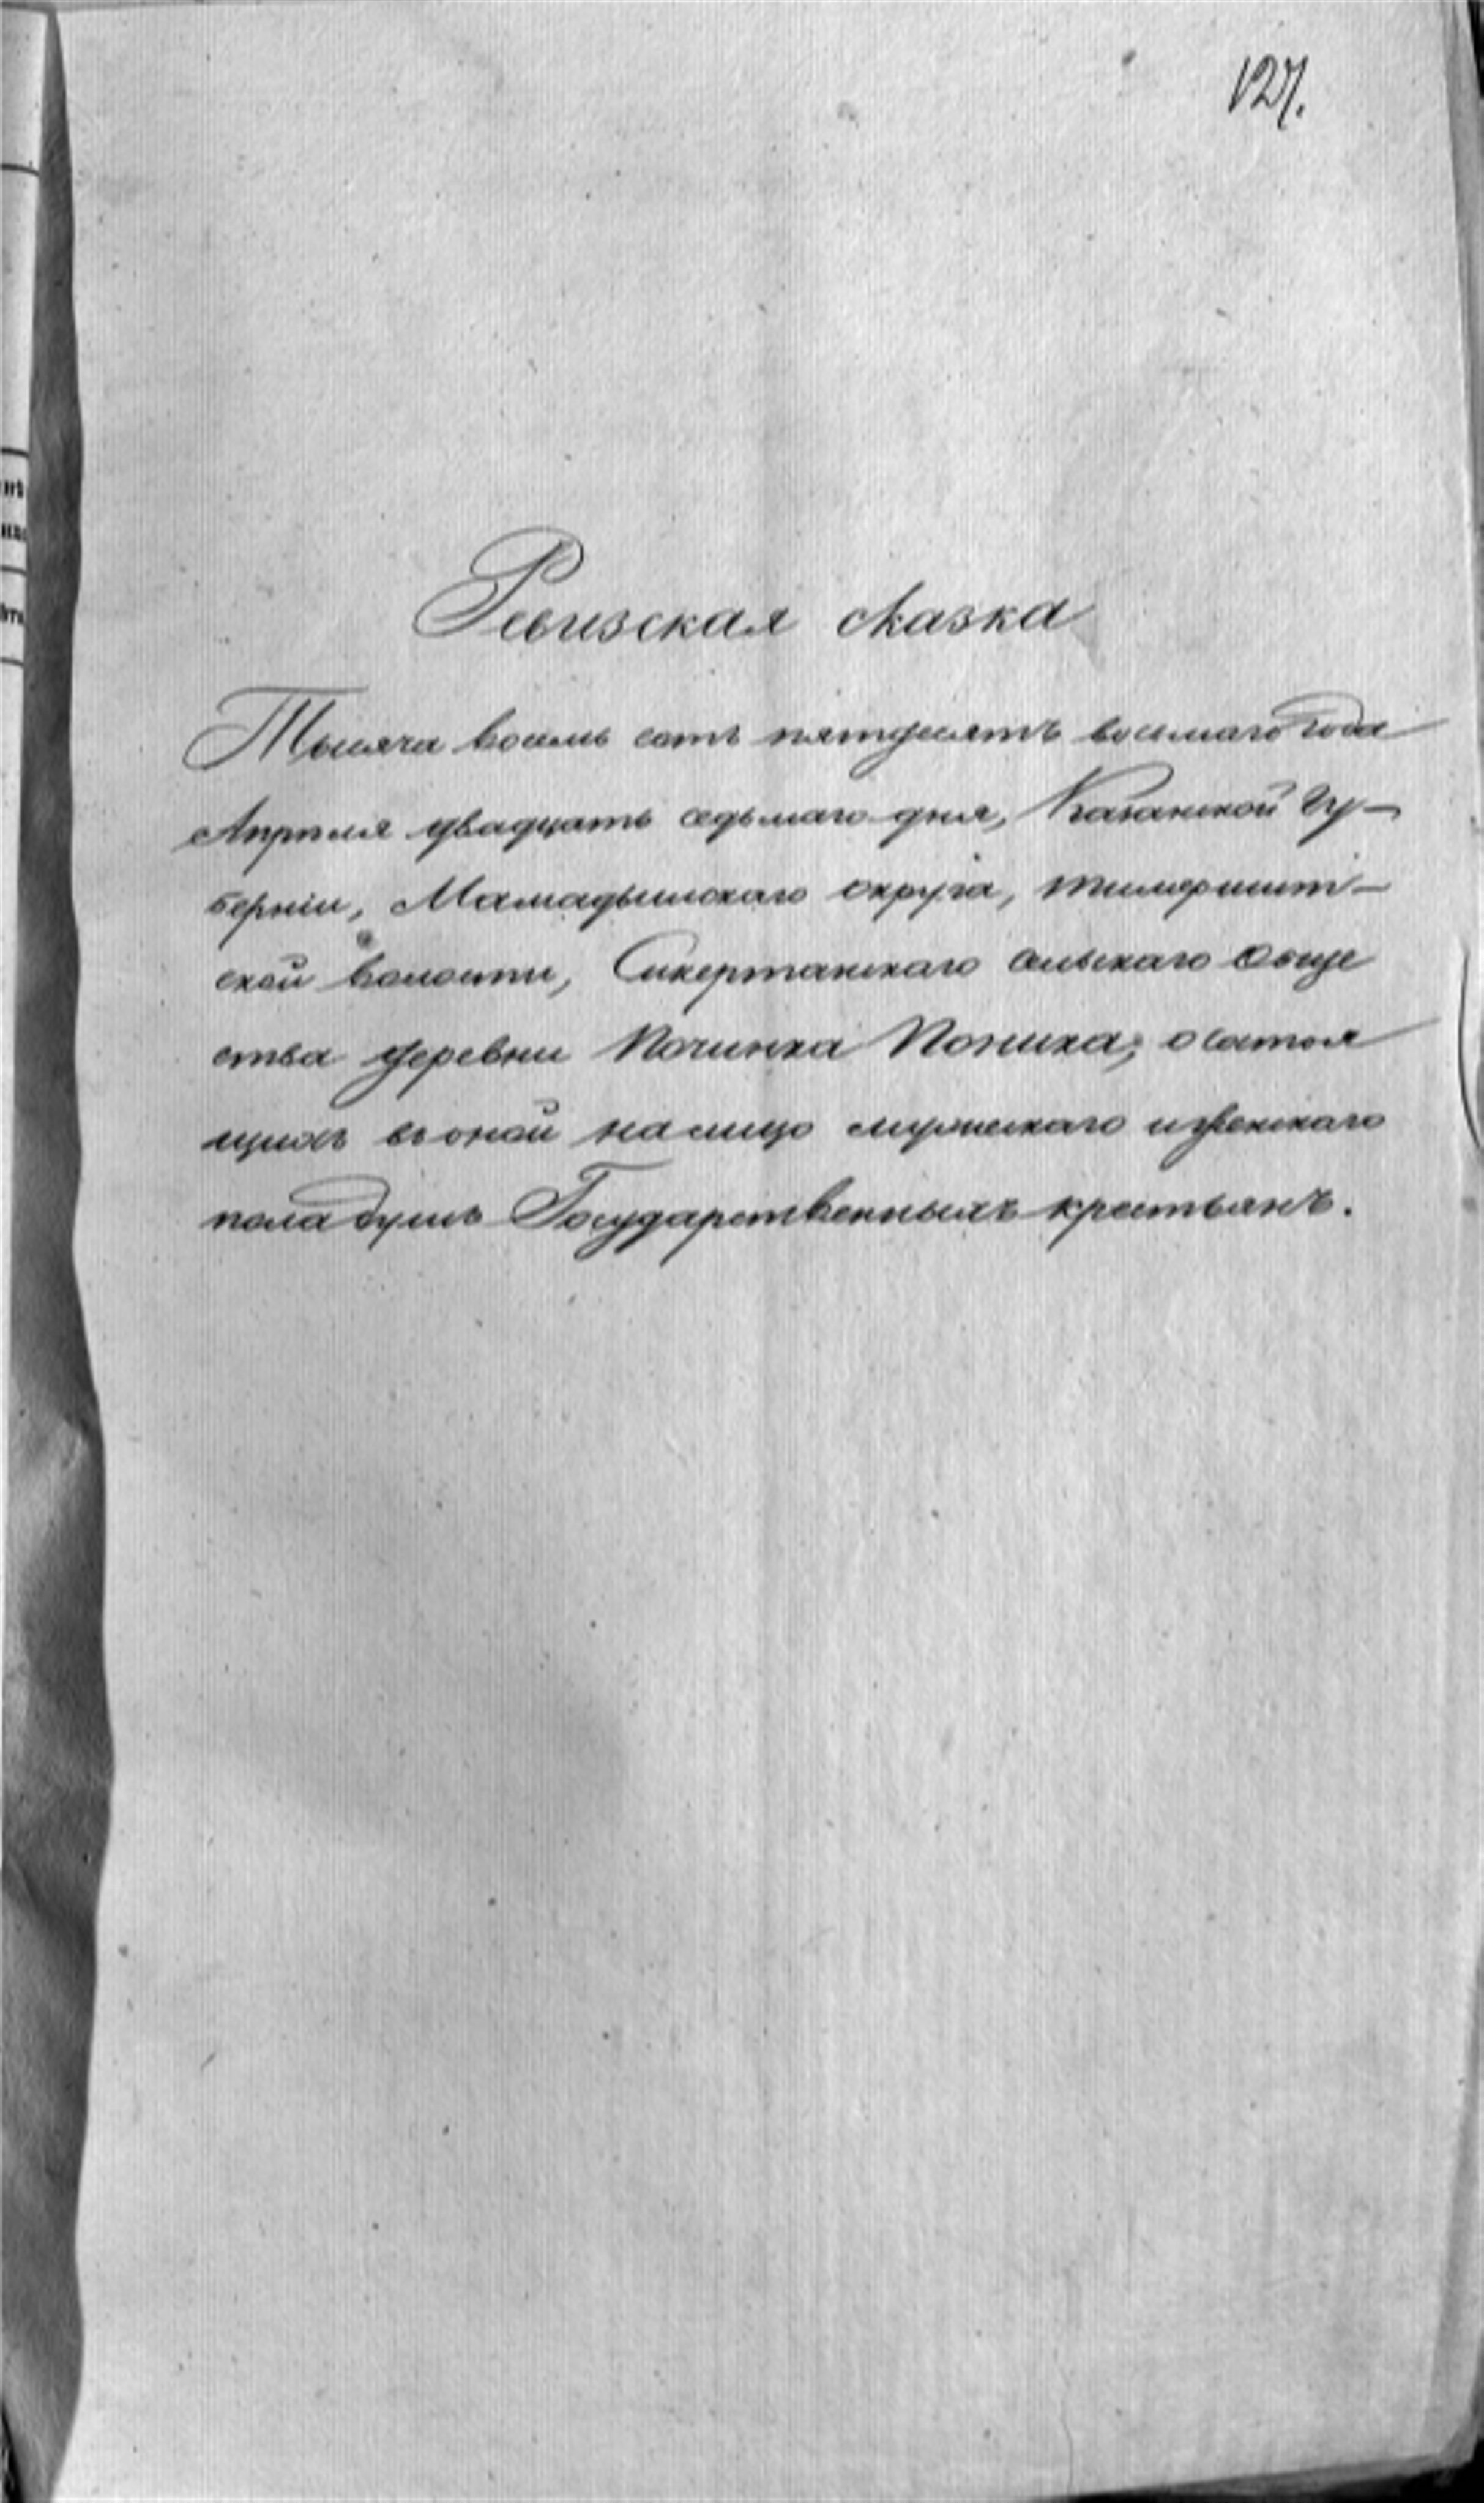 127.
Ревизская сказка
Тысяча восемь сотъ пятдесятъ восьмаго года
Апрѣля двадцать седьмаго дня, Казанской гу-
берніи, Мамадышскаго округа,
ской волости, Сикертанскаго сельскаго обще
ства деревни Починка Поника; о состоя
щихъ въ оной на лицо мужескаго и женскаго
пола душъ Государственныхъ крестьянъ.